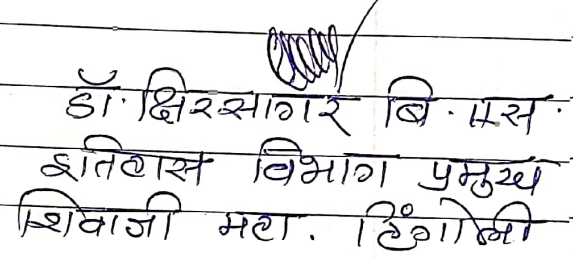 डॉ. क्षिरसागर बि. एस.
इतिहास विभाग प्रमुख
शिवाजी महा. हिंगोली